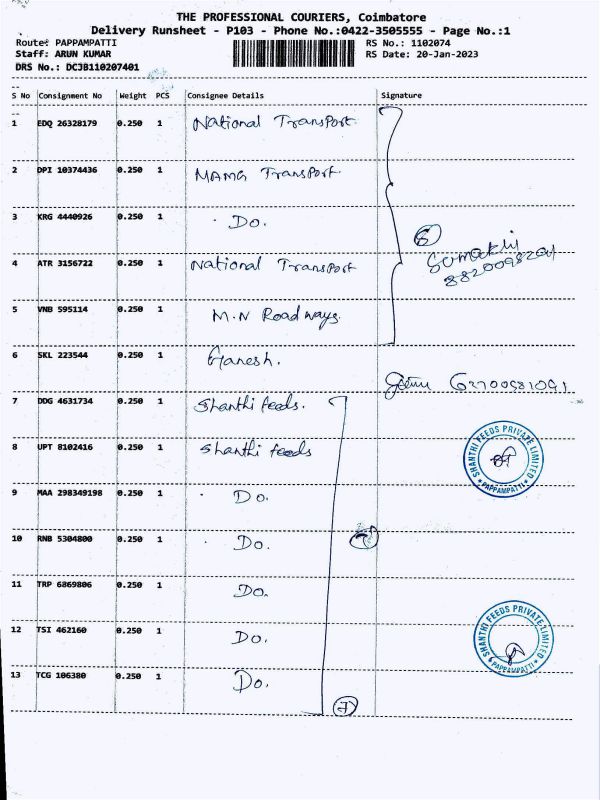 THE PROFESSIONAL COURIERS, Coimbatore
Delivery Runsheet - P103 - Phone No.:0422-3505555 - Page No.:1
Route: PAPPAMPATTI RS No.: 1102074
Staff: ARUN KUMAR RS Date: 20-Jan-2023
DRS No.: DCJB110207401
S No Consignment No Weight PCS Consignee Details Signature
1 EDQ 26328179 0.250 1 National Transport.
2 DPI 10374436 0.250 1 MAMG Transport.
3 KRG 4440926 0.250 1 Do.
4 ATR 3156722 0.250 1 National Transport
5 VNB 595114 0.250 1 M.N Roadways.
6 SKL 223544 0.250 1 Ganesh.
7 DDG 4631734 0.250 1 Shanthi feeds.
8 UPT 8102416 0.250 1 Shanthi feeds
SHANTHI FEEDS PRIVATE LIMITED
PAPPAMPATTI
9 MAA 298349198 0.250 1 Do.
10 RNB 5304800 0.250 1 Do.
11 TRP 6869806 0.250 1 Do.
12 TSI 462160 0.250 1 Do.
SHANTHI FEEDS PRIVATE LIMITED
PAPPAMPATTI
13 TCG 106380 0.250 1 Do.
7